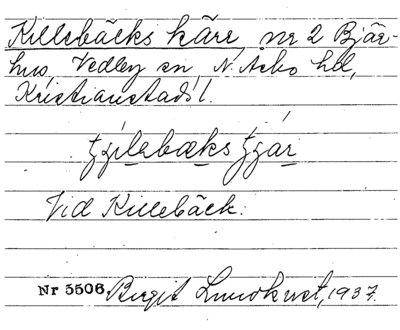 Killebäcks kärr, nr 2 Bjär-
hus, Vedby sn N. Åsbo hd,
Kristianstads l.
Vid Killebäck.
Nr 5506. Birgit Lundkvist, 1937.